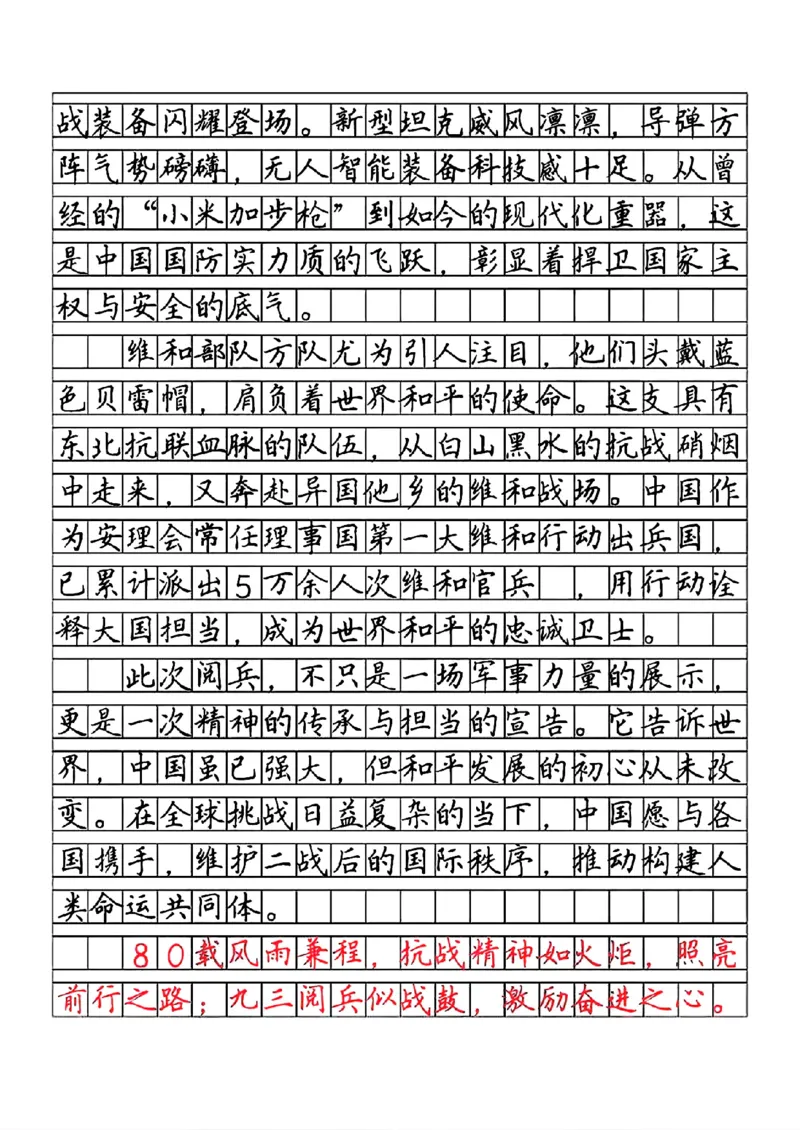 战装备闪耀登场。新型坦克威风凛凛，导弹方
阵气势磅礴，无人智能装备科技感十足。从曾
经的“小米加步枪”到如今的现代化重器，这
是中国国防实力质的飞跃，彰显着捍卫国家主
权与安全的底气。
维和部队方队尤为引人注目，他们头戴蓝
色贝雷帽，肩负着世界和平的使命。这支具有
东北抗联血脉的队伍，从白山黑水的抗战硝烟
中走来，又奔赴异国他乡的维和战场。中国作
为安理会常任理事国第一大维和行动出兵国，
已累计派出5万余人次维和官兵 ，用行动诠
释大国担当，成为世界和平的忠诚卫士。
此次阅兵，不只是一场军事力量的展示，
更是一次精神的传承与担当的宣告。它告诉世
界，中国虽已强大，但和平发展的初心从未改
变。在全球挑战日益复杂的当下，中国愿与各
国携手，维护二战后的国际秩序，推动构建人
类命运共同体。
80载风雨兼程，抗战精神如火炬，照亮
前行之路；九三阅兵似战鼓，激励奋进之心。